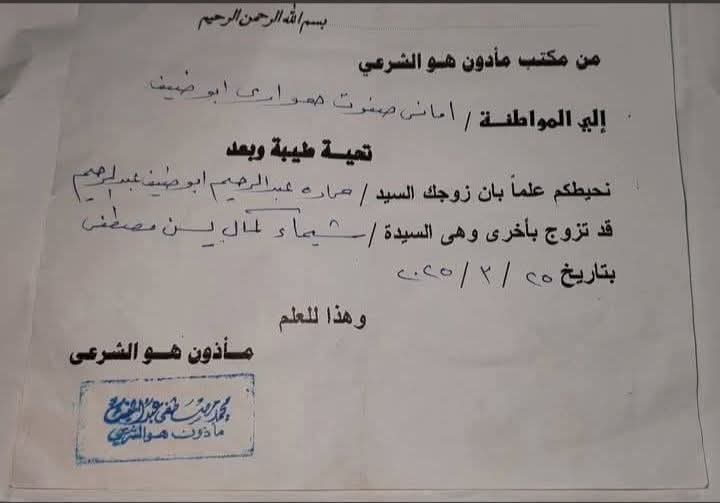 بسم الله الرحمن الرحيم
من مكتب مأذون هو الشرعي
إلي المواطنة / اماني صفوت هواري ابوضيف
تحية طيبة وبعد
نحيطكم علماً بان زوجك السيد / حماده عبدالرحيم ابوضيف عبدالرحيم
قد تزوج بأخرى وهى السيدة / شيماء كمال يسن مصطفى
بتاريخ ٢٥ / ٣ / ٢٠٢٥
وهذا للعلم
مأذون هو الشرعى
محمد مصطفى
مأذون هو الشرعي